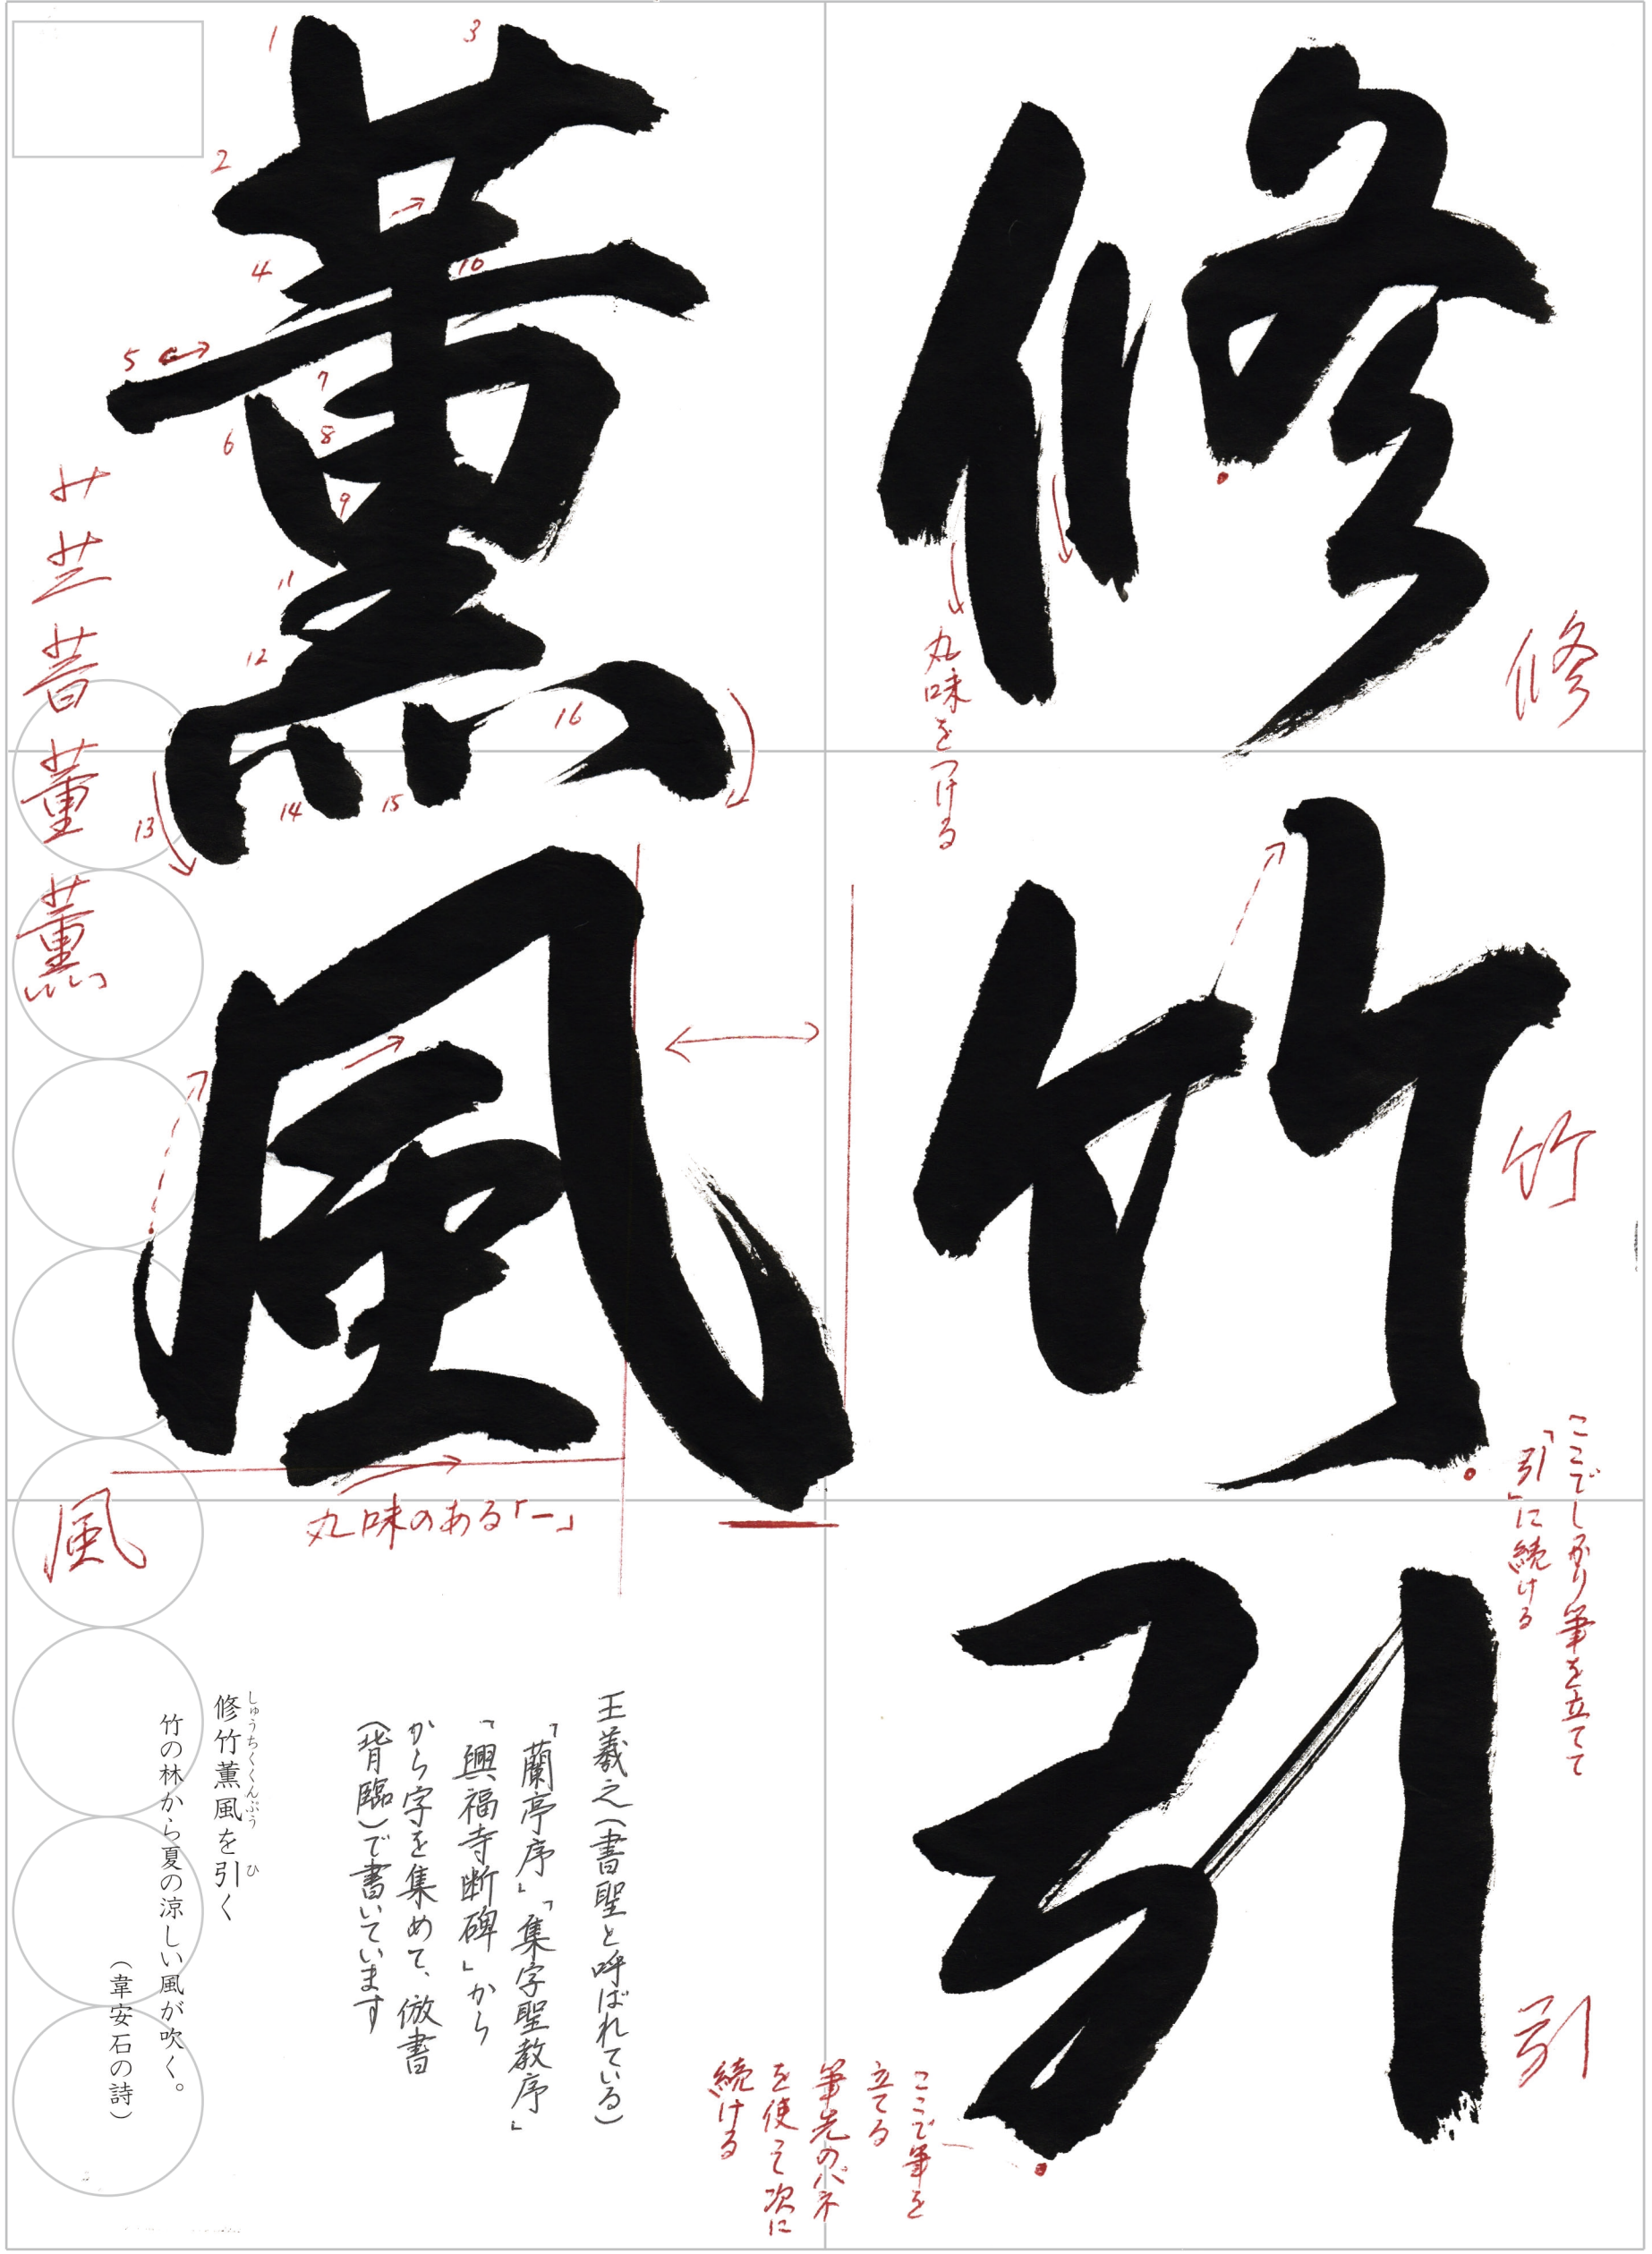 修竹引
薫風
修
丸味をつける
竹
ここでしっかり筆を立てて
「引」に続ける
引
ここで筆を
立てる
筆先のバネ
を使って次に
続ける
1
2
3
4
5
6
7
8
9
10
11
12
13
14
15
16
薫
丸味のある「一」
風
王羲之(書聖と呼ばれている)
「蘭亭序」「集字聖教序」
「興福寺断碑」から
から字を集めて、倣書
(背臨)で書いています
修竹薫風を引く
しゅうちくくんぷう ひ
竹の林から夏の涼しい風が吹く。
(韋安石の詩)